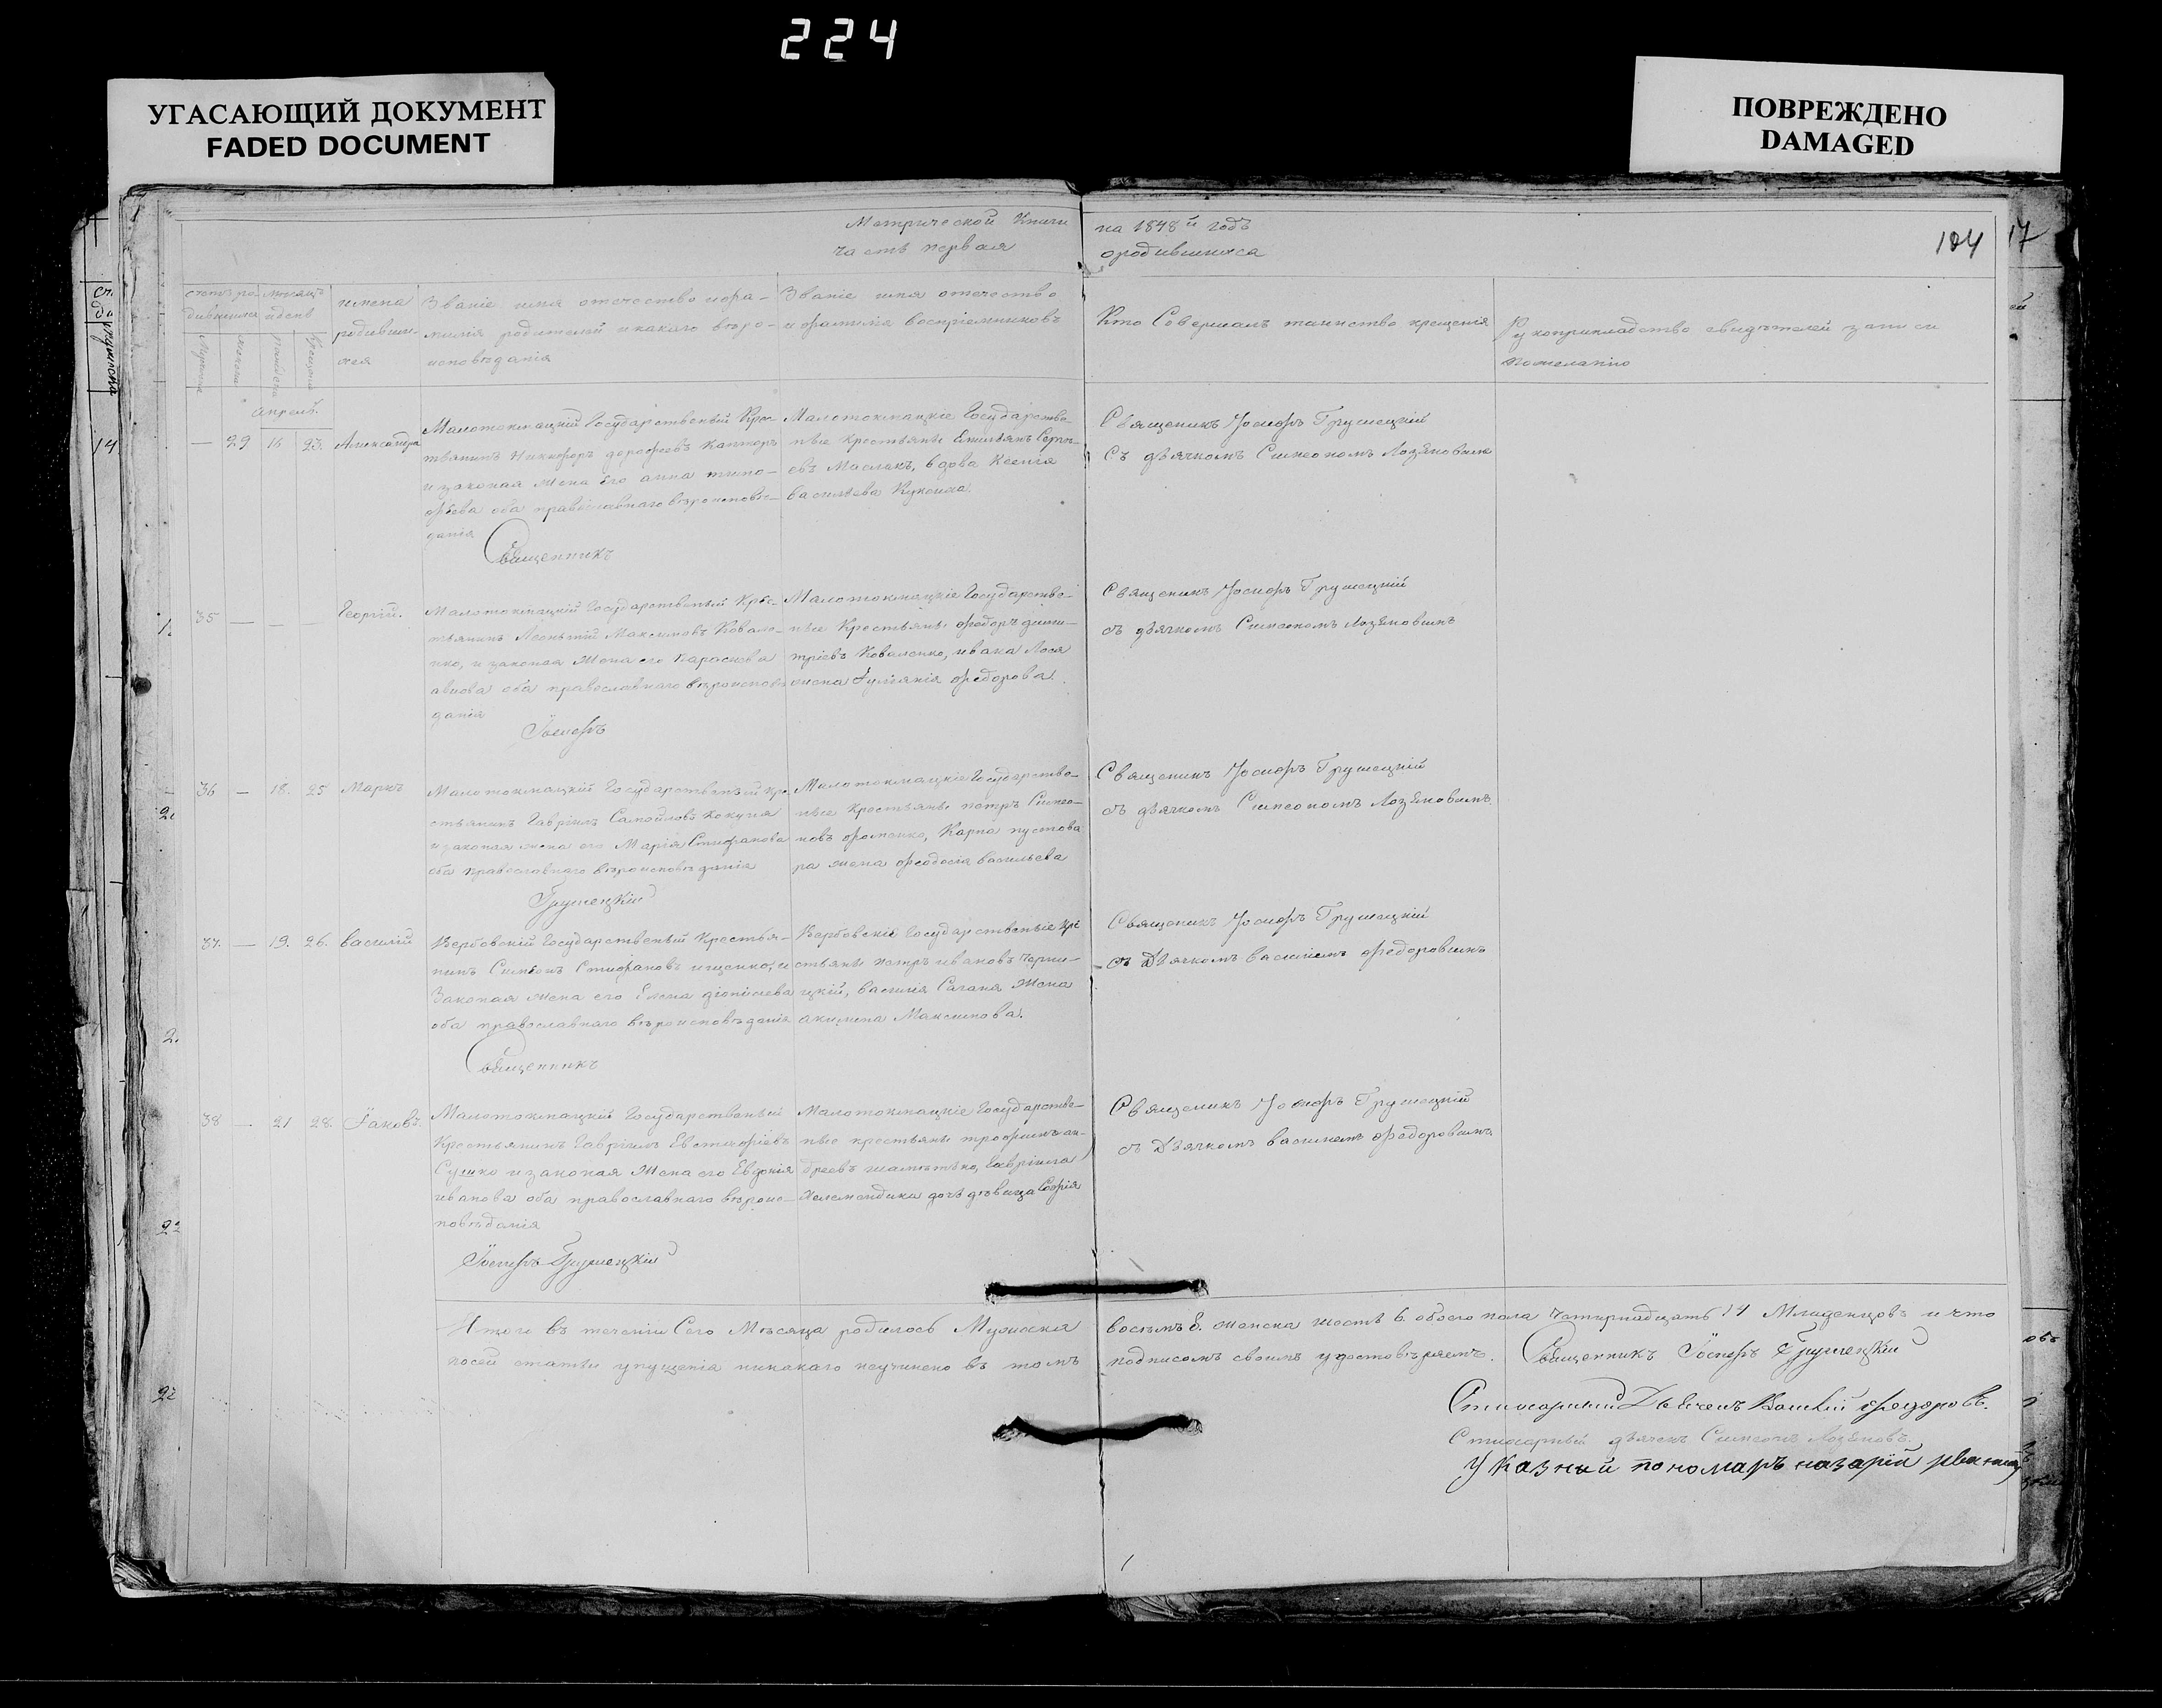 224
УГАСАЮЩИЙ ДОКУМЕНТ
FADED DOCUMENT
ПОВРЕЖДЕНО
DAMAGED
Метрической Книги на 1848й годъ
часть первая ородившихся
104
17
счетъ родившихся
месяцъ и день
имена родивших-
хся
Званіе имя отечество ифа-
милія родителей икакаго веро-
исповѣданія
Званіе имя отечество
ифамилія воспріемниковъ
Кто Совершалъ таинство крещенія
Рукоприкладство свидѣтелей записи
пожеланію
апрель
14
— 29 16 23. Александра
Малотокмацкій Государственый Крес-
тянинъ Никифоръ дорофеевъ
и законая жена Его анна тимо-
фѣева оба православнаго вѣроисповѣ-
данія
Малотокмацкіе Государстве-
ные крестьяне Емильянъ Серге-
евъ Маслакъ, вдова Ксенія
васильева
Священикъ Иосифъ Грушецкій
Съ дѣячкомъ Симеономъ Лозяновымъ
Священникъ
35 — — — Георгій.
Малотокмацкій Государственый Крес-
тьянинъ Леонтій Максимовъ Ковале-
нко, и законая жена его Параскова
оба православнаго вѣроисповѣ
данія
Малотокмацкіе Государстве-
ные Крестьяне федоръ дими-
тріевъ Коваленко, ивана Лося
жена федорова.
Священикъ Иосифъ Грушецкій
съ дѣячкомъ Симеономъ Лозяновымъ
Іосифъ
36 — 18. 25 Маркъ
Малотокмацкій Государственый кре
стьянинъ Гавріилъ Самойловъ
изаконая жена его Марія Стифанова
оба православнаго вѣроисповѣданія
Малотокмацкіе Государстве-
ные крестьяне петръ Симео-
новъ фоменко, Карпа пустова
ра жена феодосія васильева
Священикъ Иосифъ Грушецкій
съ дѣячкомъ Симеономъ Лозяновымъ.
Грушецкій
37. — 19. 26. василій
Вербовскій Государственый Крестья-
нинъ Симеонъ Стифановъ ищенко, и
Законая жена его Елена діонісиева
оба православнаго вѣроисповѣданія
Вербовскіе Государственые кре
стьяне петръ ивановъ Черни-
цкій, василія Сагана жена
Максимова.
Священикъ Иосифъ Грушецкій
съ Дѣячкомъ василіемъ федоровымъ
Священникъ
38 — 21 28. Іаковъ.
Малотокмацкій Государственый
Крестьянинъ Гавріилъ Евстафіевъ
Сушко изаконая жена его Евдокія
иванова оба православнаго вѣроис-
повѣданія
Малотокмацкіе Государстве-
ные крестьяне трофимъ ан-
дреевъ Гавріила
дочь дѣвица Софія
Священикъ Иосифъ Грушецкій
съ Дѣячкомъ василіемъ федоровымъ.
Іосифъ Грушецкій
Итого въ теченіи Сего Мѣсяца родилось Мужеска восемь 8. женска шесть 6. обоего пола Четырнадцать 14 Младенцовъ ичто
посей статьи упущенія никакаго неучинено въ томъ подписомъ своимъ удостовѣряемъ. Священникъ Іосифъ Грушецкій
Стихарный Дьячекъ Василій федоровъ.
Стихарный дѣячекъ Симеонъ Лозяновъ.
Указный пономарь назарій